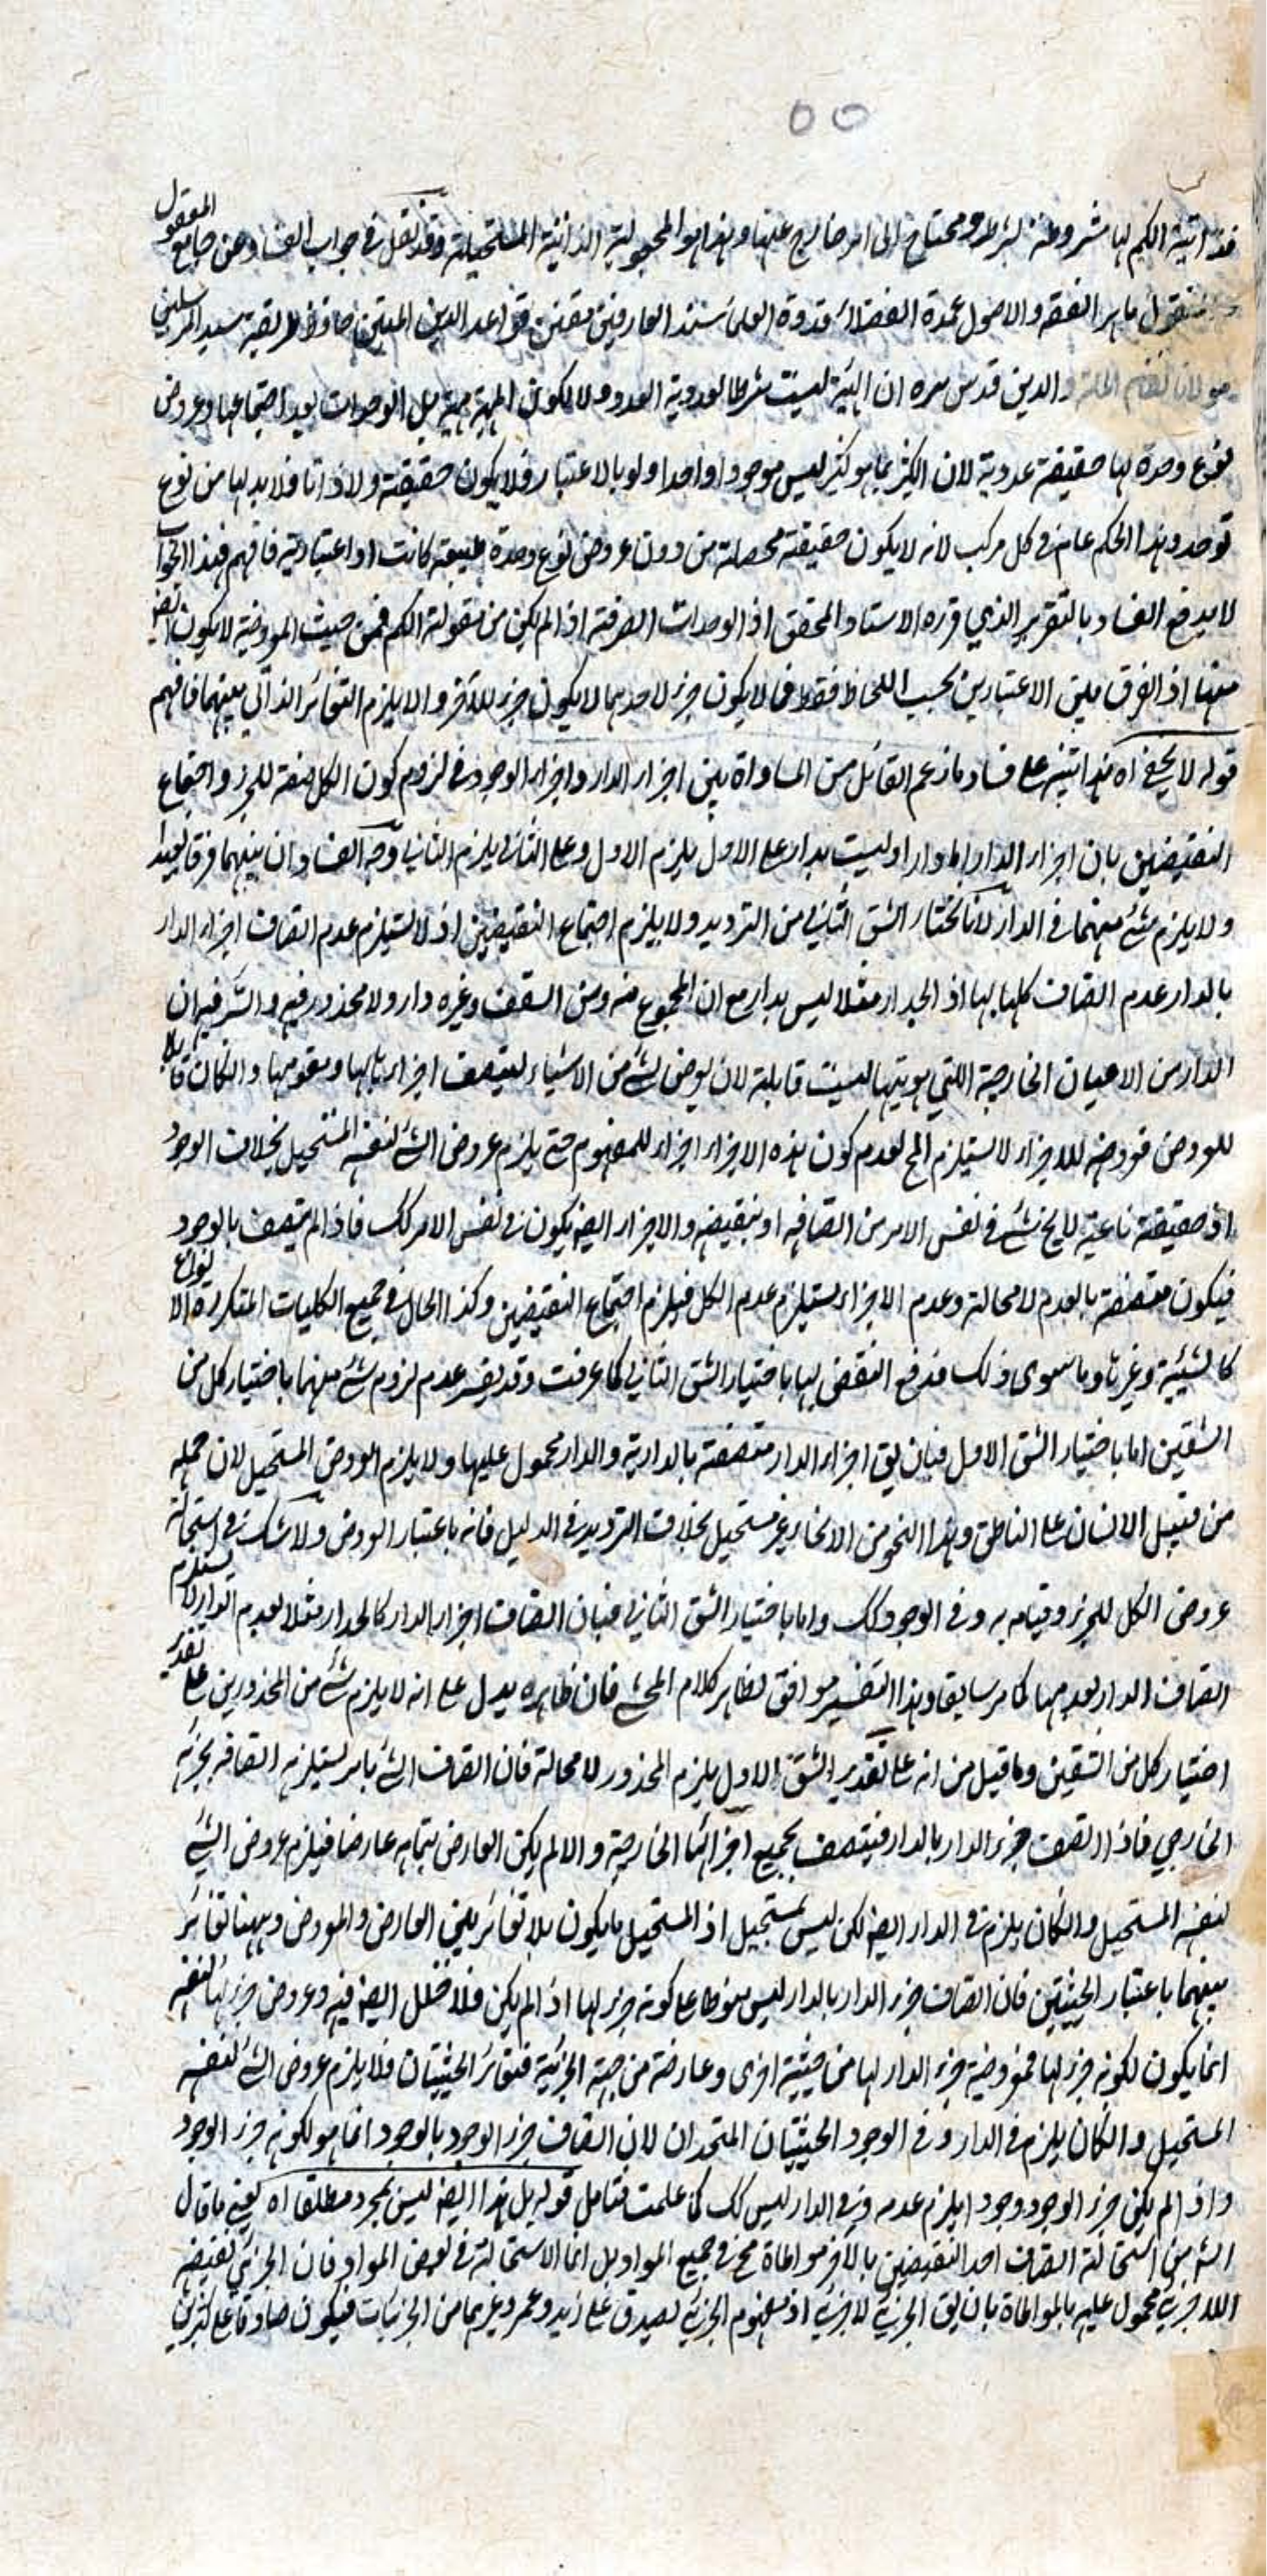 ٥٥
الكم لها مشروطة بشرط ومحتاج الى امر خارج عنها وهذا هو المجعولية الذاتية المستحيلة وقد نقل في جواب الفساد عن جامع المعقول
ماهر الفقه والاصول عمدة الفضلاء قدوة العلماء سند العارفين مقنن قواعد الدين المتين حافظ طريقة سيد المرسلين
مولانا نظام الملة والدين قدس سره ان الهيئة ليست شرطا لعددية العدد ولا لكون المهية مهية بل الوحدات بعد اجتماعها وعروض
نوع وحدة لها حقيقة عددية لان الكثير بما هو كثير ليس موجودا واحدا ولو بالاعتبار فلا يكون حقيقة ولا ذاتا فلا بد لها من نوع
توحد وهذا الحكم عام في كل مركب لانه لا يكون حقيقة محصلة من دون عروض نوع وحدة طبيعية كانت او اعتبارية فافهم فهذا الجواب
لا يدفع الفساد بالتقرير الذي قرره الاستاد المحقق اذ الوحدات الصرفة اذ لم تكن من مقولة الكم فمن حيث المعروضية لا يكون ايضا
منها اذ الفرق بين الاعتبارين بحسب اللحاظ فقط فما لا يكون جزء لاحدهما لا يكون جزء للآخر والا يلزم التغائر الذاتي بينهما فافهم
قوله لا يخفى اه هذا تنبيه على فساد ما زعم القائل من المساواة بين اجزاء الدار واجزاء الوجود في لزوم كون الكل صفة للجزء واجتماع
النقيضين بان اجزاء الدار اما دار او ليست بدار على الاول يلزم الاول وعلى الثاني يلزم الثاني وجه الفساد ان بينهما فرقا بعيدا
ولا يلزم شئ منهما في الدار لانا نختار الشق الثاني من الترديد ولا يلزم اجتماع النقيضين اذ لا يستلزم عدم اتصاف اجزاء الدار
بالدار عدم اتصاف كلها بها اذ الجدار مثلا ليس بدار مع ان المجموع منه ومن السقف وغيره دار ولا محذور فيه والسر فيه ان
الدار من الاعيان الخارجية التي هويتها ليست قابلة لان يعرض لشئ من الاشياء ليتصف اجزاءها بها ومفهومها وان كان قابلا
للعروض فعروضه للاجزاء لا يستلزم المح لعدم كون هذه الاجزاء اجزاء للمفهوم حتى يلزم عروض الشئ لنفسه المستحيل بخلاف الوجود
اذ حقيقة ناعتية لا يخ شئ في نفس الامر من اتصافه او بنقيضه والاجزاء ايضا يكون في نفس الامر كك فاذا لم يتصف بالوجود
فيكون متصفة بالعدم لا محالة وعدم الاجزاء يستلزم عدم الكل فيلزم اجتماع النقيضين وكذا الحال في جميع الكليات المتكررة الانواع
كالشيئية وغيرها وما سوى ذلك فدفع النقض بها باختيار الشق الثاني كما عرفت وقد يفسر عدم لزوم شئ منهما باختيار كل من
الشقين اما باختيار الشق الاول فبان يق اجزاء الدار متصفة بالدارية والدار محمول عليها ولا يلزم العروض المستحيل لان حمله
من قبيل الانسان على الناطق وهذا النحو من الاتحاد غير مستحيل بخلاف الترديد في الدليل فانه باعتبار العروض ولا شك في استحالة
عروض الكل للجزء وقيامه به وفي الوجود كك واما باختيار الشق الثاني فبان اتصاف اجزاء الدار كالجدار مثلا بعدم الدار لا يستلزم
اتصاف الدار بعدمها كما مر سابقا وهذا التفسير موافق لظاهر كلام المحشي فان ظاهره يدل على انه لا يلزم شئ من المحذورين على تقدير
اختيار كل من الشقين وما قيل من انه على تقدير الشق الاول يلزم المحذور لا محالة فان اتصاف الشئ بامر يستلزم اتصافه بجزئه
الخارجي فاذا اتصف جزء الدار بالدار فيتصف بجميع اجزائها الخارجية والا لم يكن العارض بتمامه عارضا فيلزم عروض الشئ
لنفسه المستحيل وان كان يلزم في الدار ايضا لكن ليس بمستحيل اذ المستحيل ما يكون بلا تغائر بين العارض والمعروض وههنا تغائر
بينهما باعتبار الحيثيتين فان اتصاف جزء الدار بالدار ليس موقوفا على كونه جزء لها اذ لو لم يكن فلا خلل ايضا فيه وعروض جزءها لنفسه
انما يكون لكونه جزء لها فمعروضية جزء الدار لها من حيثية اخرى وعارضة من جهة الجزئية فتغائر الحيثيتان فلا يلزم عروض الشئ لنفسه
المستحيل وان كان يلزم في الدار وفي الوجود الحيثيتان المتحدان لان اتصاف جزء الوجود بالوجود انما هو لكونه جزء الوجود
واذ لم يكن جزء الوجود وجودا يلزم عدمه وفي الدار ليس كك كما علمت فتامل قوله بل هذا ايضا ليس بمجرد مطلقا اه يعني ما قال
الشه من استحالة اتصاف احد النقيضين بالآخر مواطاة مخ في جميع المواد بل انما الاستحالة في بعض المواد فان الجزئي نقيضه
اللاجزئي محمول عليه بالمواطاة بان يق الجزئي لاجزئي اذ مفهوم الجزئي يصدق على زيد وعمرو وغيرهما من الجزئيات فيكون صادقا على كثيرين